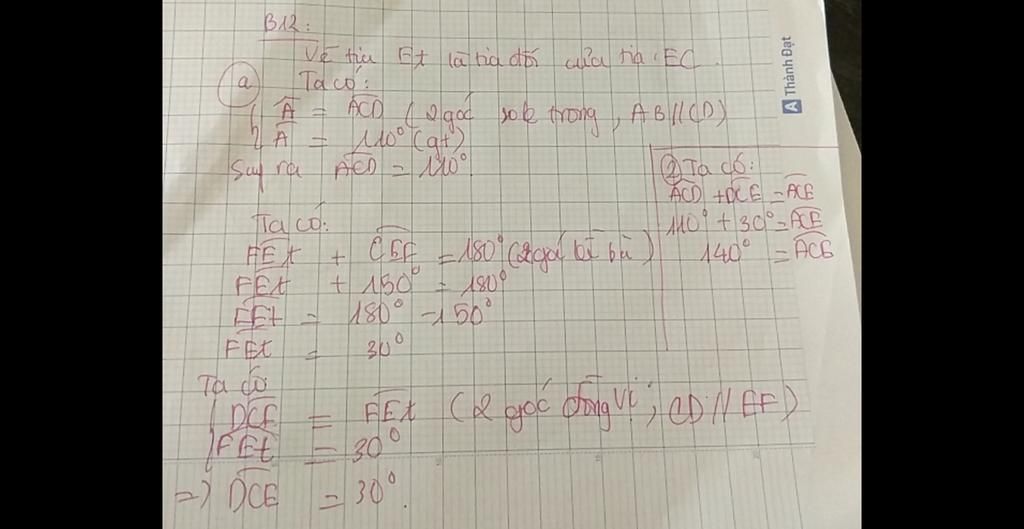 B12:
Vẽ tia Et là tia đối của tia EC.
a) Ta có:
{ Â = ACD (2 góc sole trong, AB//CD)
Â = 110° (gt)
Suy ra ACD = 110°.
Ta có:
FEt + CEF = 180° (2 góc kề bù)
FEt + 150° = 180°
FEt = 180° - 150°
FEt = 30°
Ta có
{ DCE = FEt (2 góc đồng vị; CD // EF)
FEt = 30°
=> DCE = 30°.
② Ta có:
ACD + DCE = ACE
110° + 30° = ACE
140° = ACE
A Thành Đạt